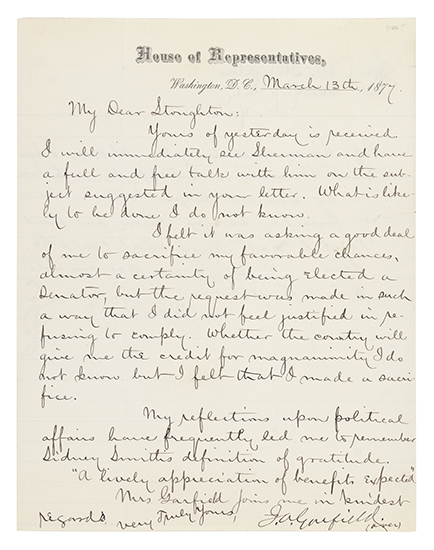 House of Representatives,
Washington, D.C., March 13th, 1877.
My Dear Stoughton:
Yours of yesterday is received
I will immediately see Sherman and have
a full and free talk with him on the sub-
ject suggested in your letter. What is like-
ly to be done I do not know.
I felt it was asking a good deal
of me to sacrifice my favorable chances,
almost a certainty of being elected a
Senator, but the request was made in such
a way that I did not feel justified in re-
fusing to comply. Whether the country will
give me the credit for magnanimity I do
not know but I felt that I made a sacri-
fice.
My reflections upon political
affairs have frequently led me to remember
Sidney Smiths definition of gratitude.
"A lively appreciation of benefits expected"
Mrs Garfield joins me in kindest
regards very Truly Yours, J. A. Garfield.